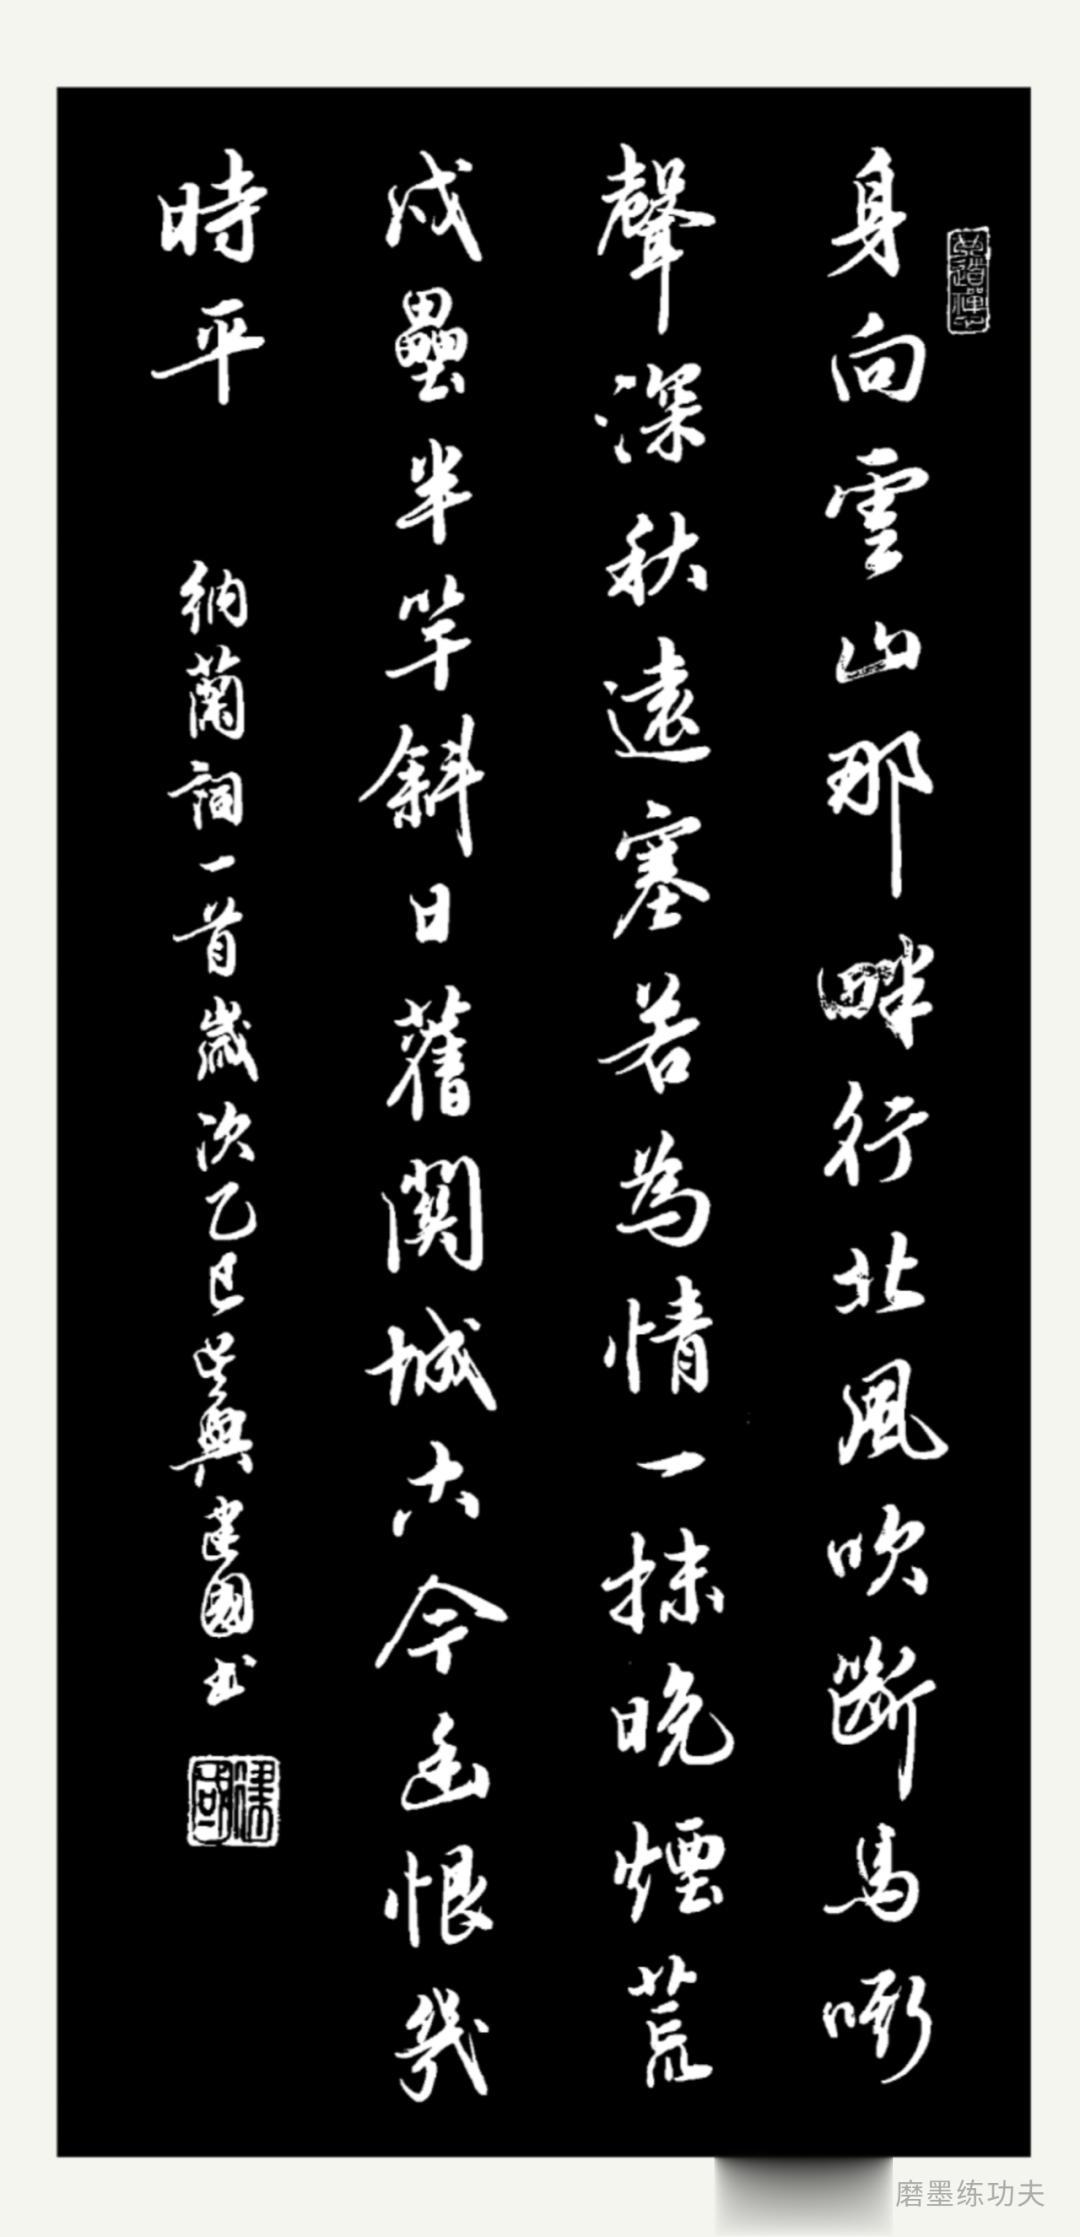 身向雲山那畔行北風吹斷馬嘶
聲深秋遠塞若為情一抹晚煙荒
戍壘半竿斜日舊關城古今幽恨幾
時平
納蘭詞一首歲次乙巳吳興建國書
建國
磨墨练功夫